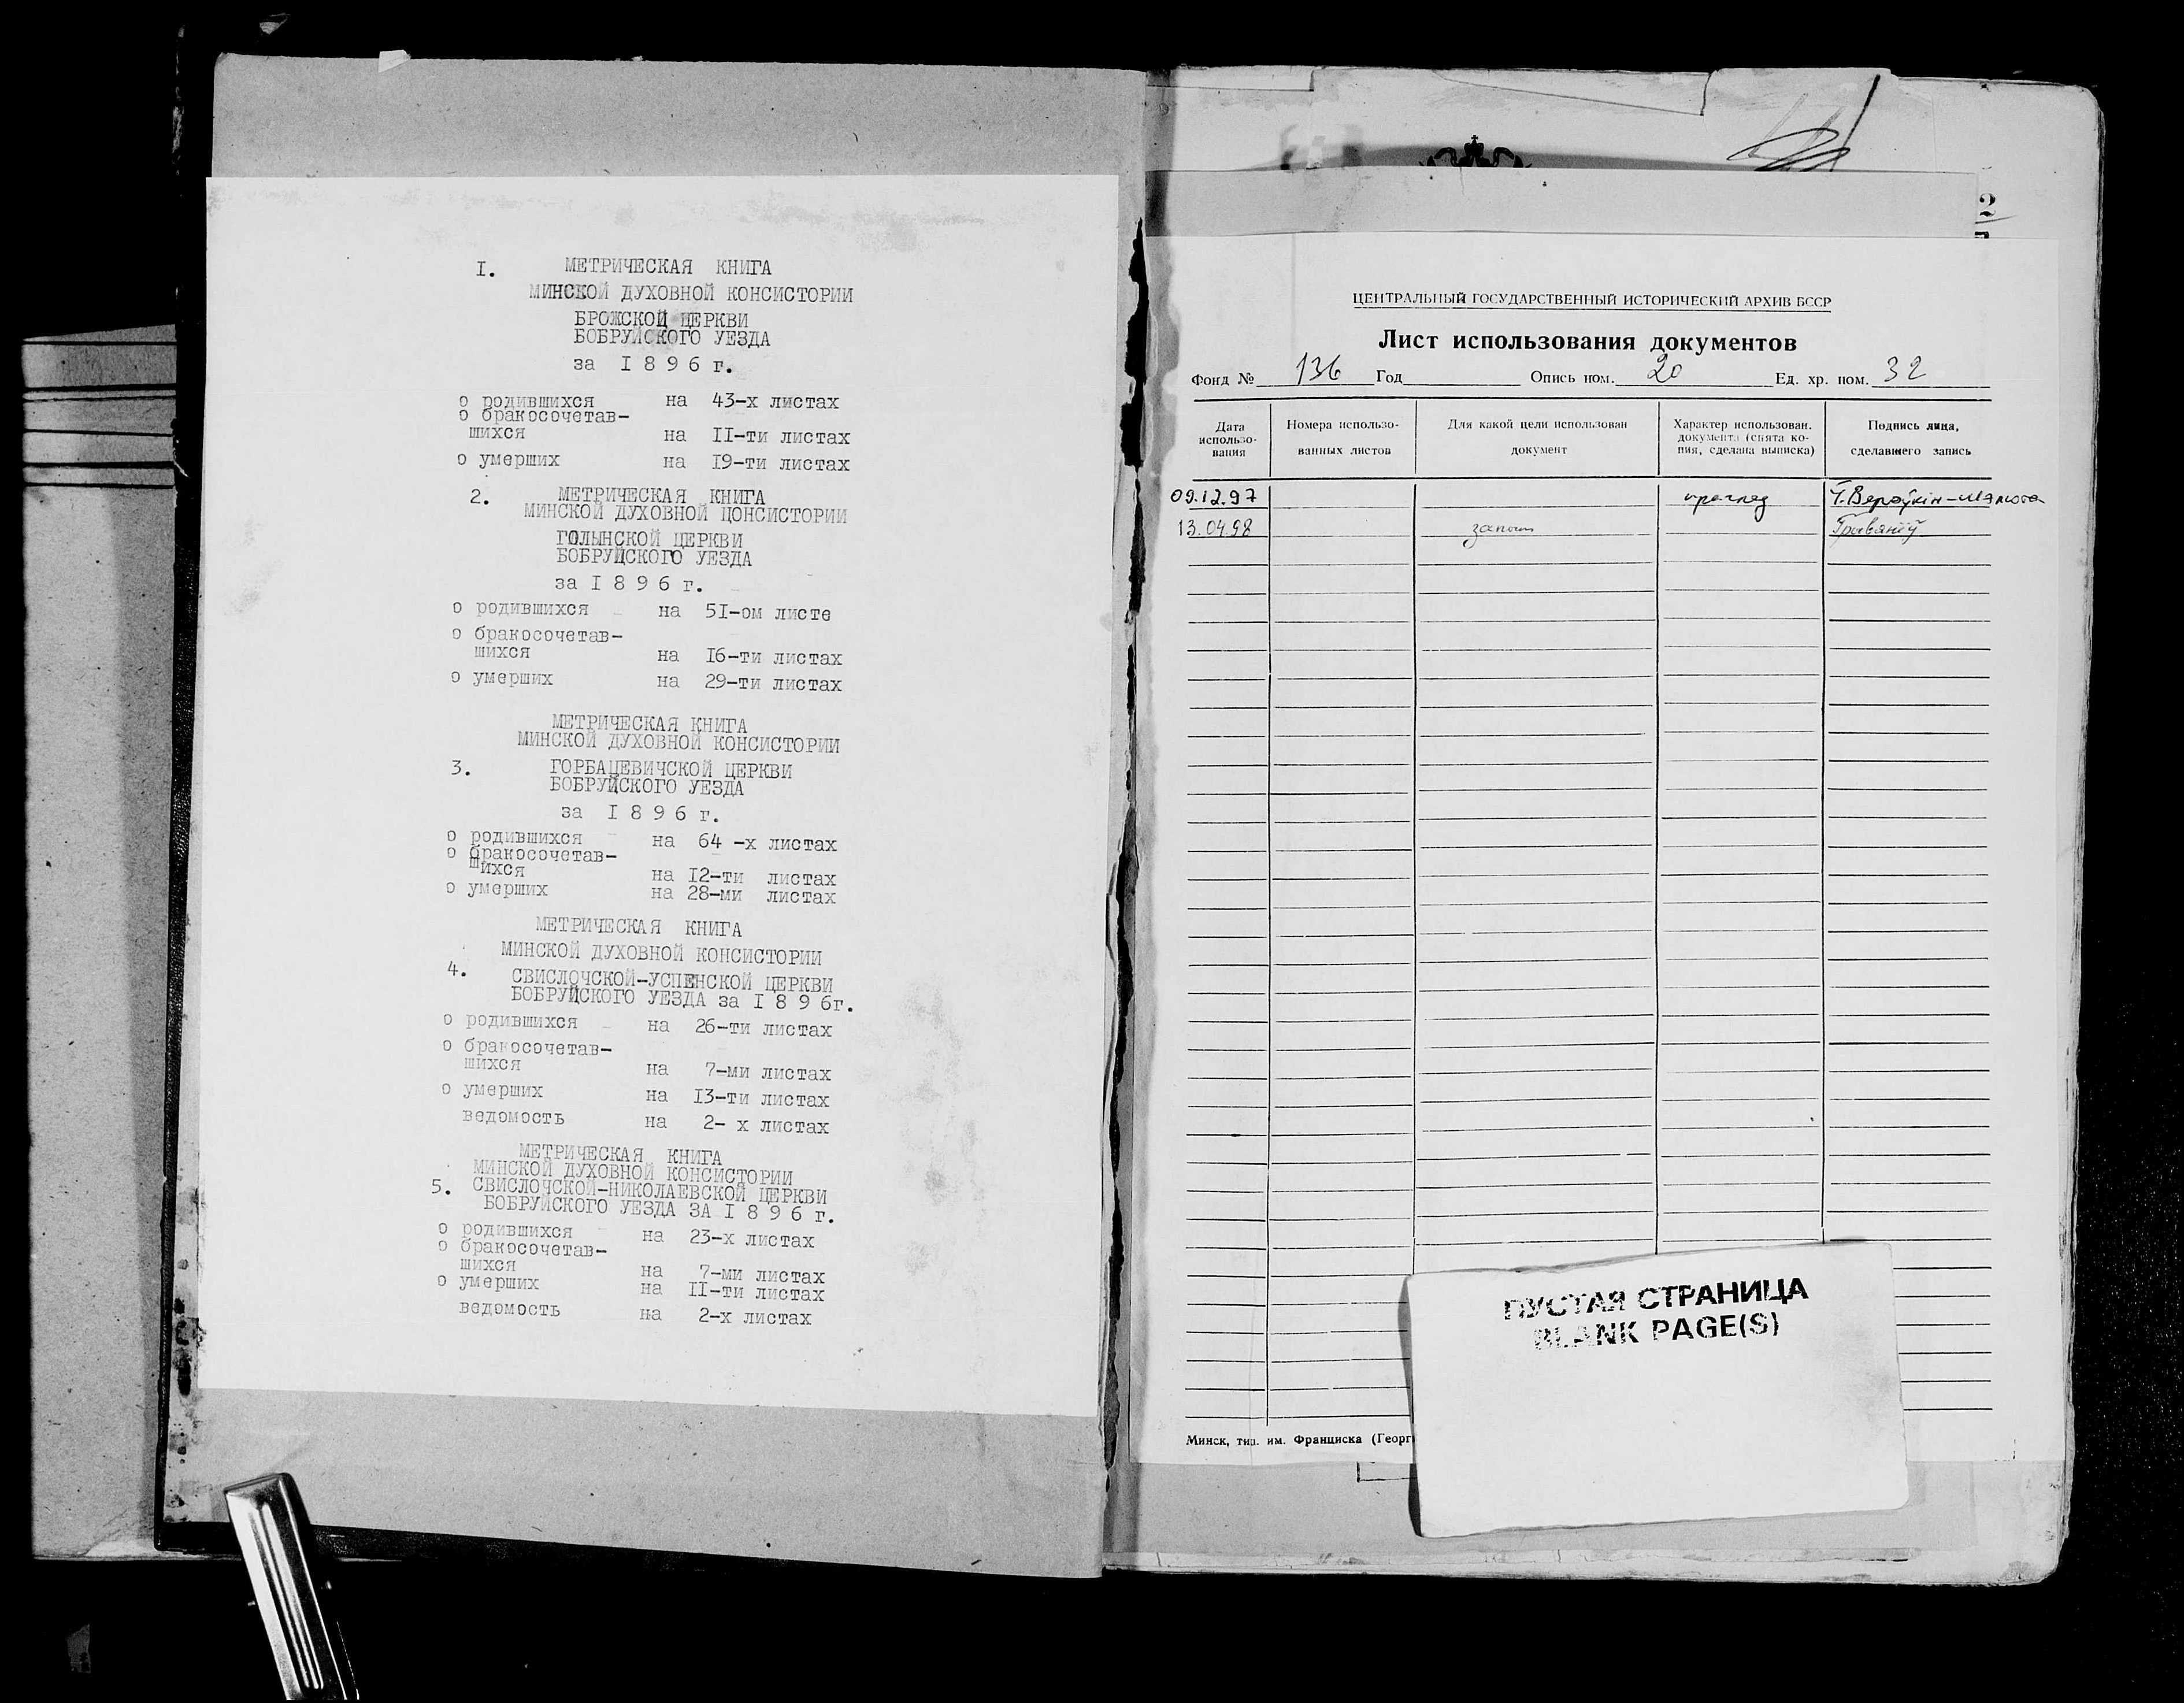 I. МЕТРИЧЕСКАЯ КНИГА
МИНСКОЙ ДУХОВНОЙ КОНСИСТОРИИ
БРОЖСКОЙ ЦЕРКВИ
БОБРУЙСКОГО УЕЗДА
за I 8 9 6 г.
о родившихся на 43-х листах
о бракосочетав-
шихся на II-ти листах
о умерших на I9-ти листах
2. МЕТРИЧЕСКАЯ КНИГА
МИНСКОЙ ДУХОВНОЙ ЦОНСИСТОРИИ
ГОЛЫНСКОЙ ЦЕРКВИ
БОБРУЙСКОГО УЕЗДА
за I 8 9 6 г.
о родившихся на 5I-ом листе
о бракосочетав-
шихся на I6-ти листах
о умерших на 29-ти листах
МЕТРИЧЕСКАЯ КНИГА
МИНСКОЙ ДУХОВНОЙ КОНСИСТОРИИ
3. ГОРБАЦЕВИЧСКОЙ ЦЕРКВИ
БОБРУЙСКОГО УЕЗДА
за I 8 9 6 г.
о родившихся на 64 -х листах
о бракосочетав-
шихся на I2-ти листах
о умерших на 28-ми листах
МЕТРИЧЕСКАЯ КНИГА
МИНСКОЙ ДУХОВНОЙ КОНСИСТОРИИ
4. СВИСЛОЧСКОЙ-УСПЕНСКОЙ ЦЕРКВИ
БОБРУЙСКОГО УЕЗДА за I 8 9 6г.
о родившихся на 26-ти листах
о бракосочетав-
шихся на 7-ми листах
о умерших на I3-ти листах
ведомость на 2- х листах
МЕТРИЧЕСКАЯ КНИГА
МИНСКОЙ ДУХОВНОЙ КОНСИСТОРИИ
5. СВИСЛОЧСКОЙ-НИКОЛАЕВСКОЙ ЦЕРКВИ
БОБРУЙСКОГО УЕЗДА ЗА I 8 9 6 г.
о родившихся на 23-х листах
о бракосочетав-
шихся на 7-ми листах
о умерших на II-ти листах
ведомость на 2-х листах
2
ЦЕНТРАЛЬНЫЙ ГОСУДАРСТВЕННЫЙ ИСТОРИЧЕСКИЙ АРХИВ БССР
Лист использования документов
Фонд № 136 Год Опись ном. 20 Ед. хр. ном. 32
Дата использо- вания
Номера использо- ванных листов
Для какой цели использован документ
Характер использован. документа (снята ко- пия, сделана выписка)
Подпись лица, сделавшего запись
09.12.97 прагляд
13.04.98 запыт
ПУСТАЯ СТРАНИЦА
BLANK PAGE(S)
Минск, тип. им. Франциска (Георг